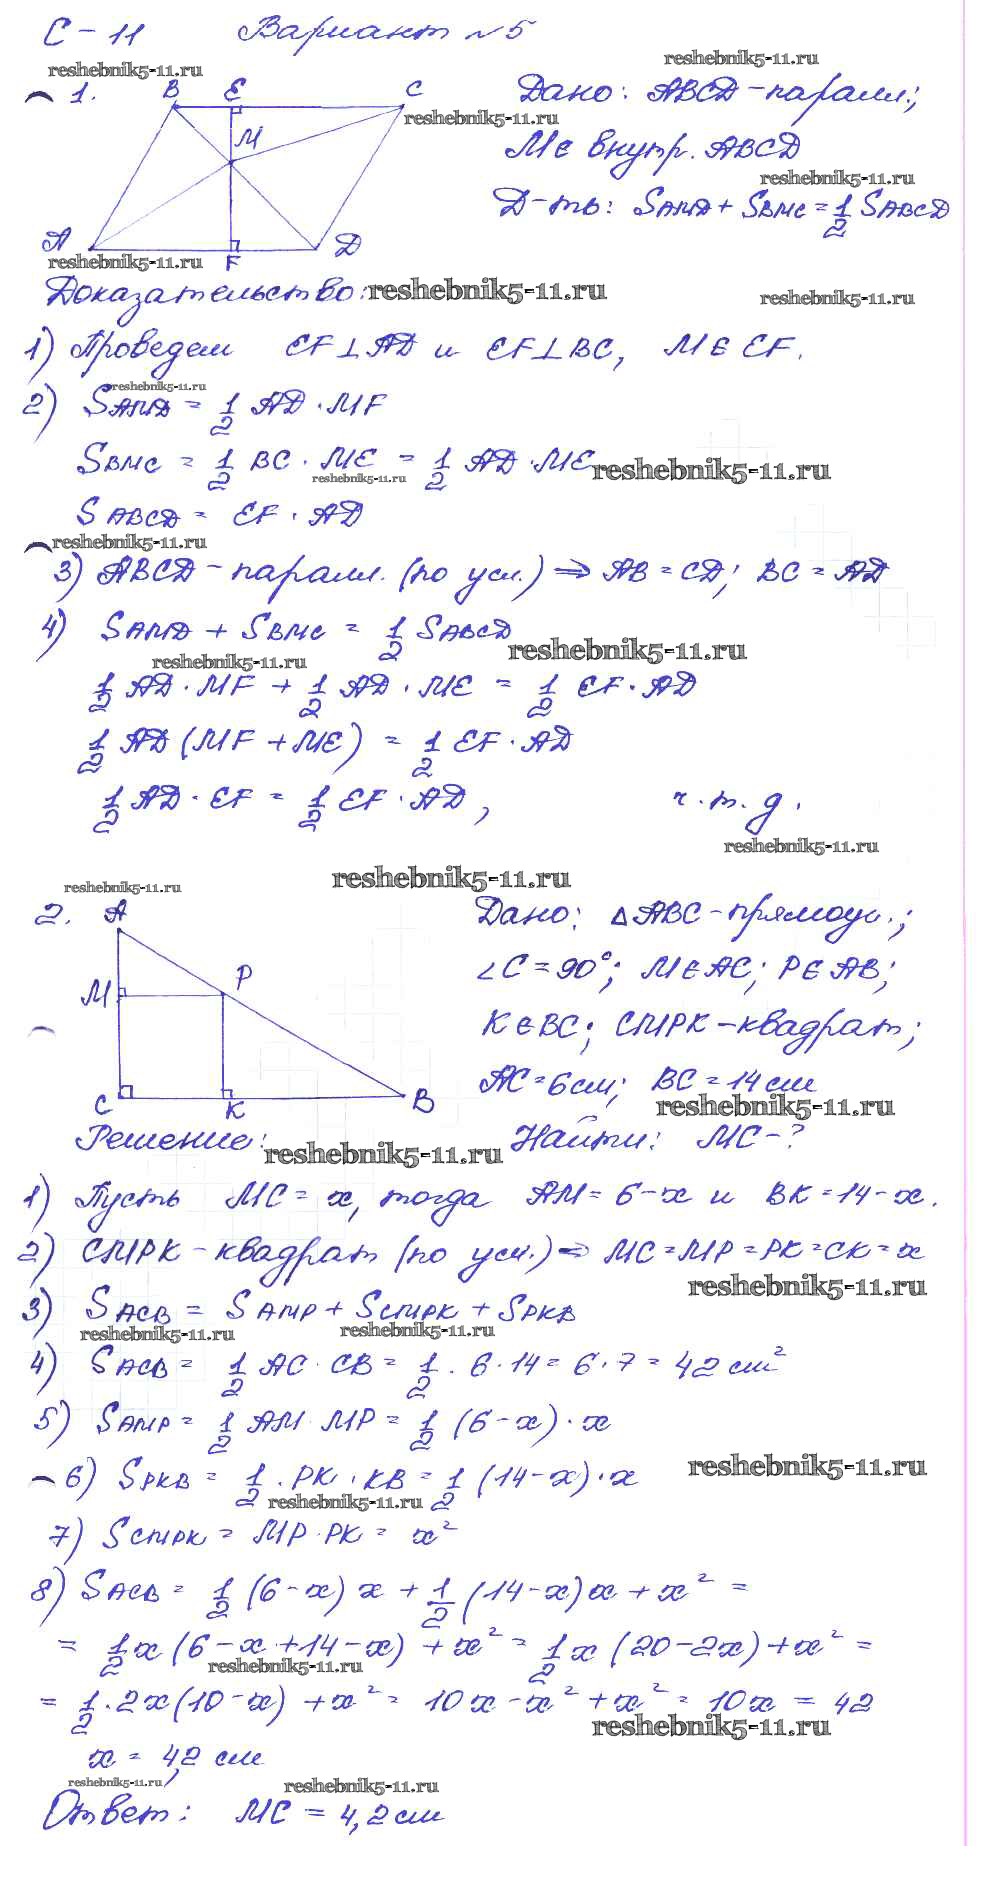 С-11 Вариант №5
reshebnik5-11.ru
reshebnik5-11.ru
1.
B E C
M
A F D
Дано: ABCD-паралл.;
reshebnik5-11.ru
M∈ внутр. ABCD
reshebnik5-11.ru
Д-ть: SAMD + SBMC = 1/2 SABCD
reshebnik5-11.ru
Доказательство: reshebnik5-11.ru
reshebnik5-11.ru
1) Проведем EF⊥AD и EF⊥BC, M∈EF.
reshebnik5-11.ru
2) SAMD = 1/2 AD·MF
SBMC = 1/2 BC·ME = 1/2 AD·ME
reshebnik5-11.ru
reshebnik5-11.ru
SABCD = EF·AD
reshebnik5-11.ru
3) ABCD-паралл. (по усл.) ⇒ AB=CD; BC=AD
4) SAMD + SBMC = 1/2 SABCD
reshebnik5-11.ru
reshebnik5-11.ru
1/2 AD·MF + 1/2 AD·ME = 1/2 EF·AD
1/2 AD (MF+ME) = 1/2 EF·AD
1/2 AD·EF = 1/2 EF·AD, ч.т.д.
reshebnik5-11.ru
reshebnik5-11.ru
reshebnik5-11.ru
2.
A
M P
C K B
Дано: △ABC-прямоуг.;
∠C=90°; M∈AC; P∈AB;
K∈BC; CMPK-квадрат;
AC=6см; BC=14см
reshebnik5-11.ru
Решение: Найти: MC-?
reshebnik5-11.ru
1) Пусть MC=x, тогда AM=6-x и BK=14-x.
2) CMPK-квадрат (по усл.) ⇒ MC=MP=PK=CK=x
reshebnik5-11.ru
3) SACB = SAMP + SCMPK + SPKB
reshebnik5-11.ru
reshebnik5-11.ru
4) SACB = 1/2 AC·CB = 1/2 · 6·14 = 6·7 = 42 см²
5) SAMP = 1/2 AM·MP = 1/2 (6-x)·x
reshebnik5-11.ru
6) SPKB = 1/2 · PK·KB = 1/2 (14-x)·x
reshebnik5-11.ru
7) SCMPK = MP·PK = x²
8) SACB = 1/2 (6-x)x + 1/2 (14-x)x + x² =
= 1/2 x (6-x+14-x) + x² = 1/2 x (20-2x) + x² =
reshebnik5-11.ru
= 1/2 · 2x(10-x) + x² = 10x - x² + x² = 10x = 42
reshebnik5-11.ru
x = 4,2 см
reshebnik5-11.ru
reshebnik5-11.ru
Ответ: MC = 4,2 см